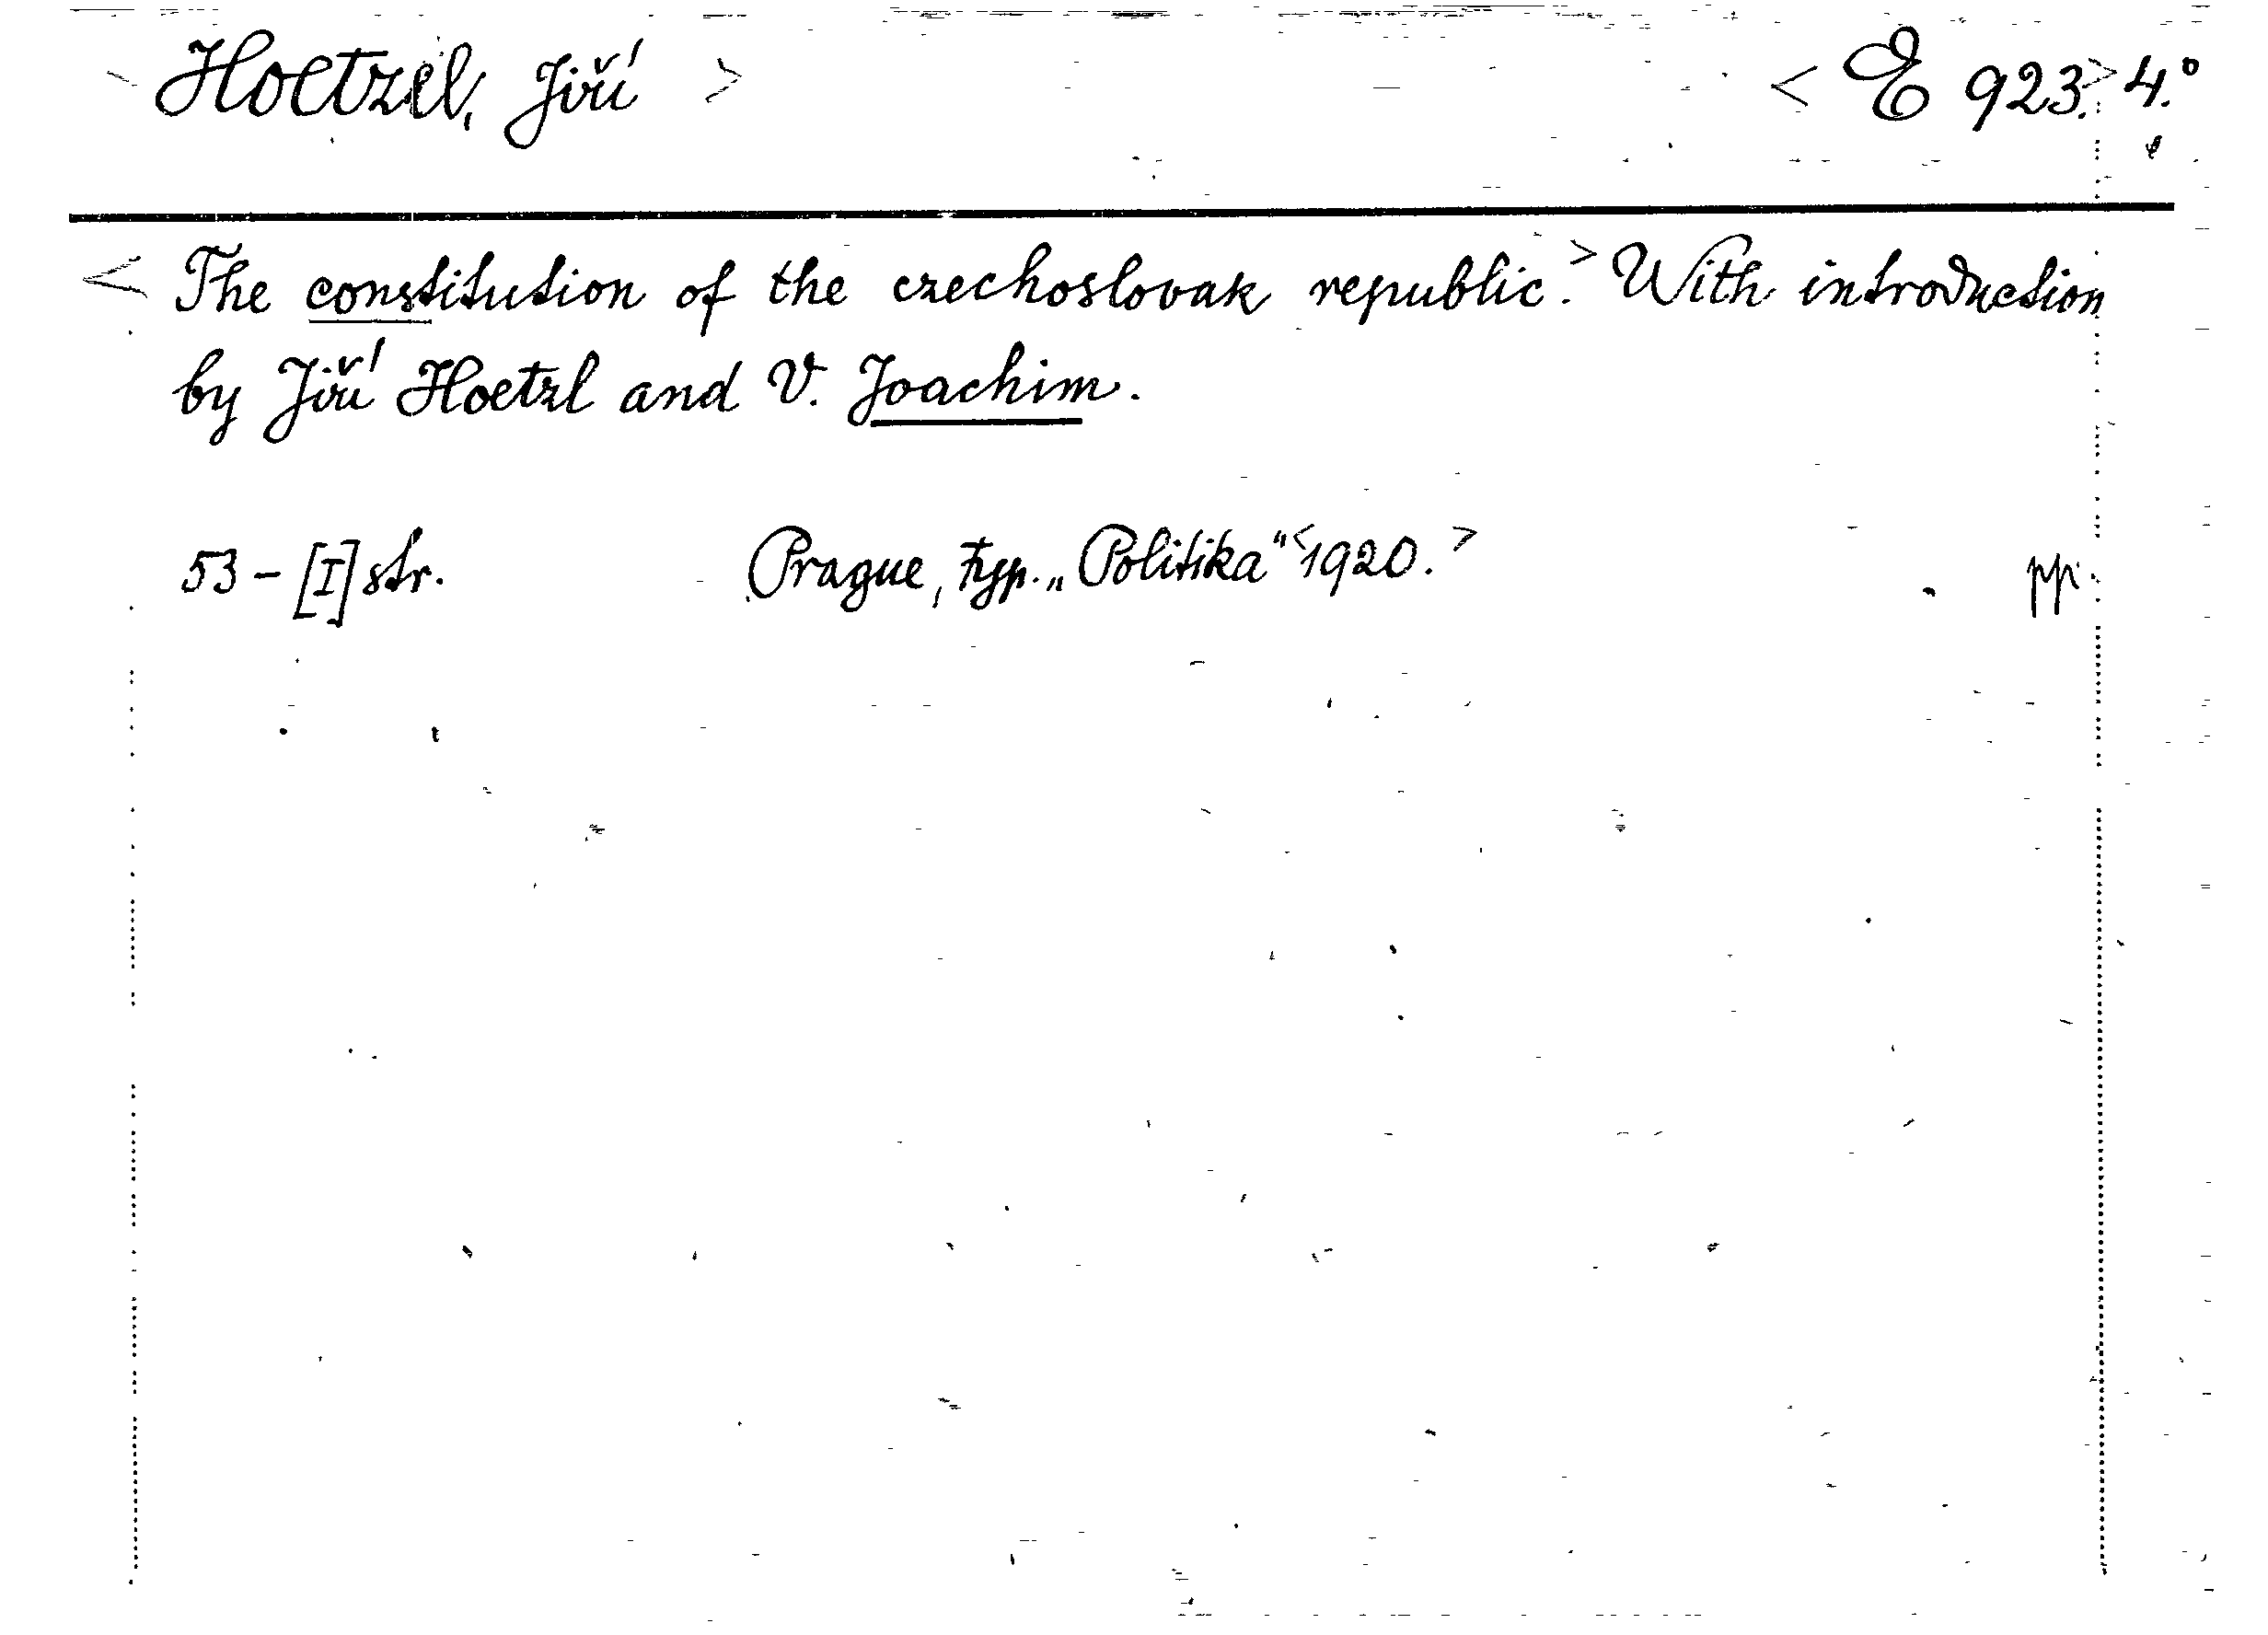 < Hoetzel, Jiří > < E 923.> 4.°
< The constitution of the czechoslovak republic.> With introduction
by Jiří Hoetzl and V. Joachim.
53 - [I] str. Prague, typ. „Politika“ <1920.> pp.